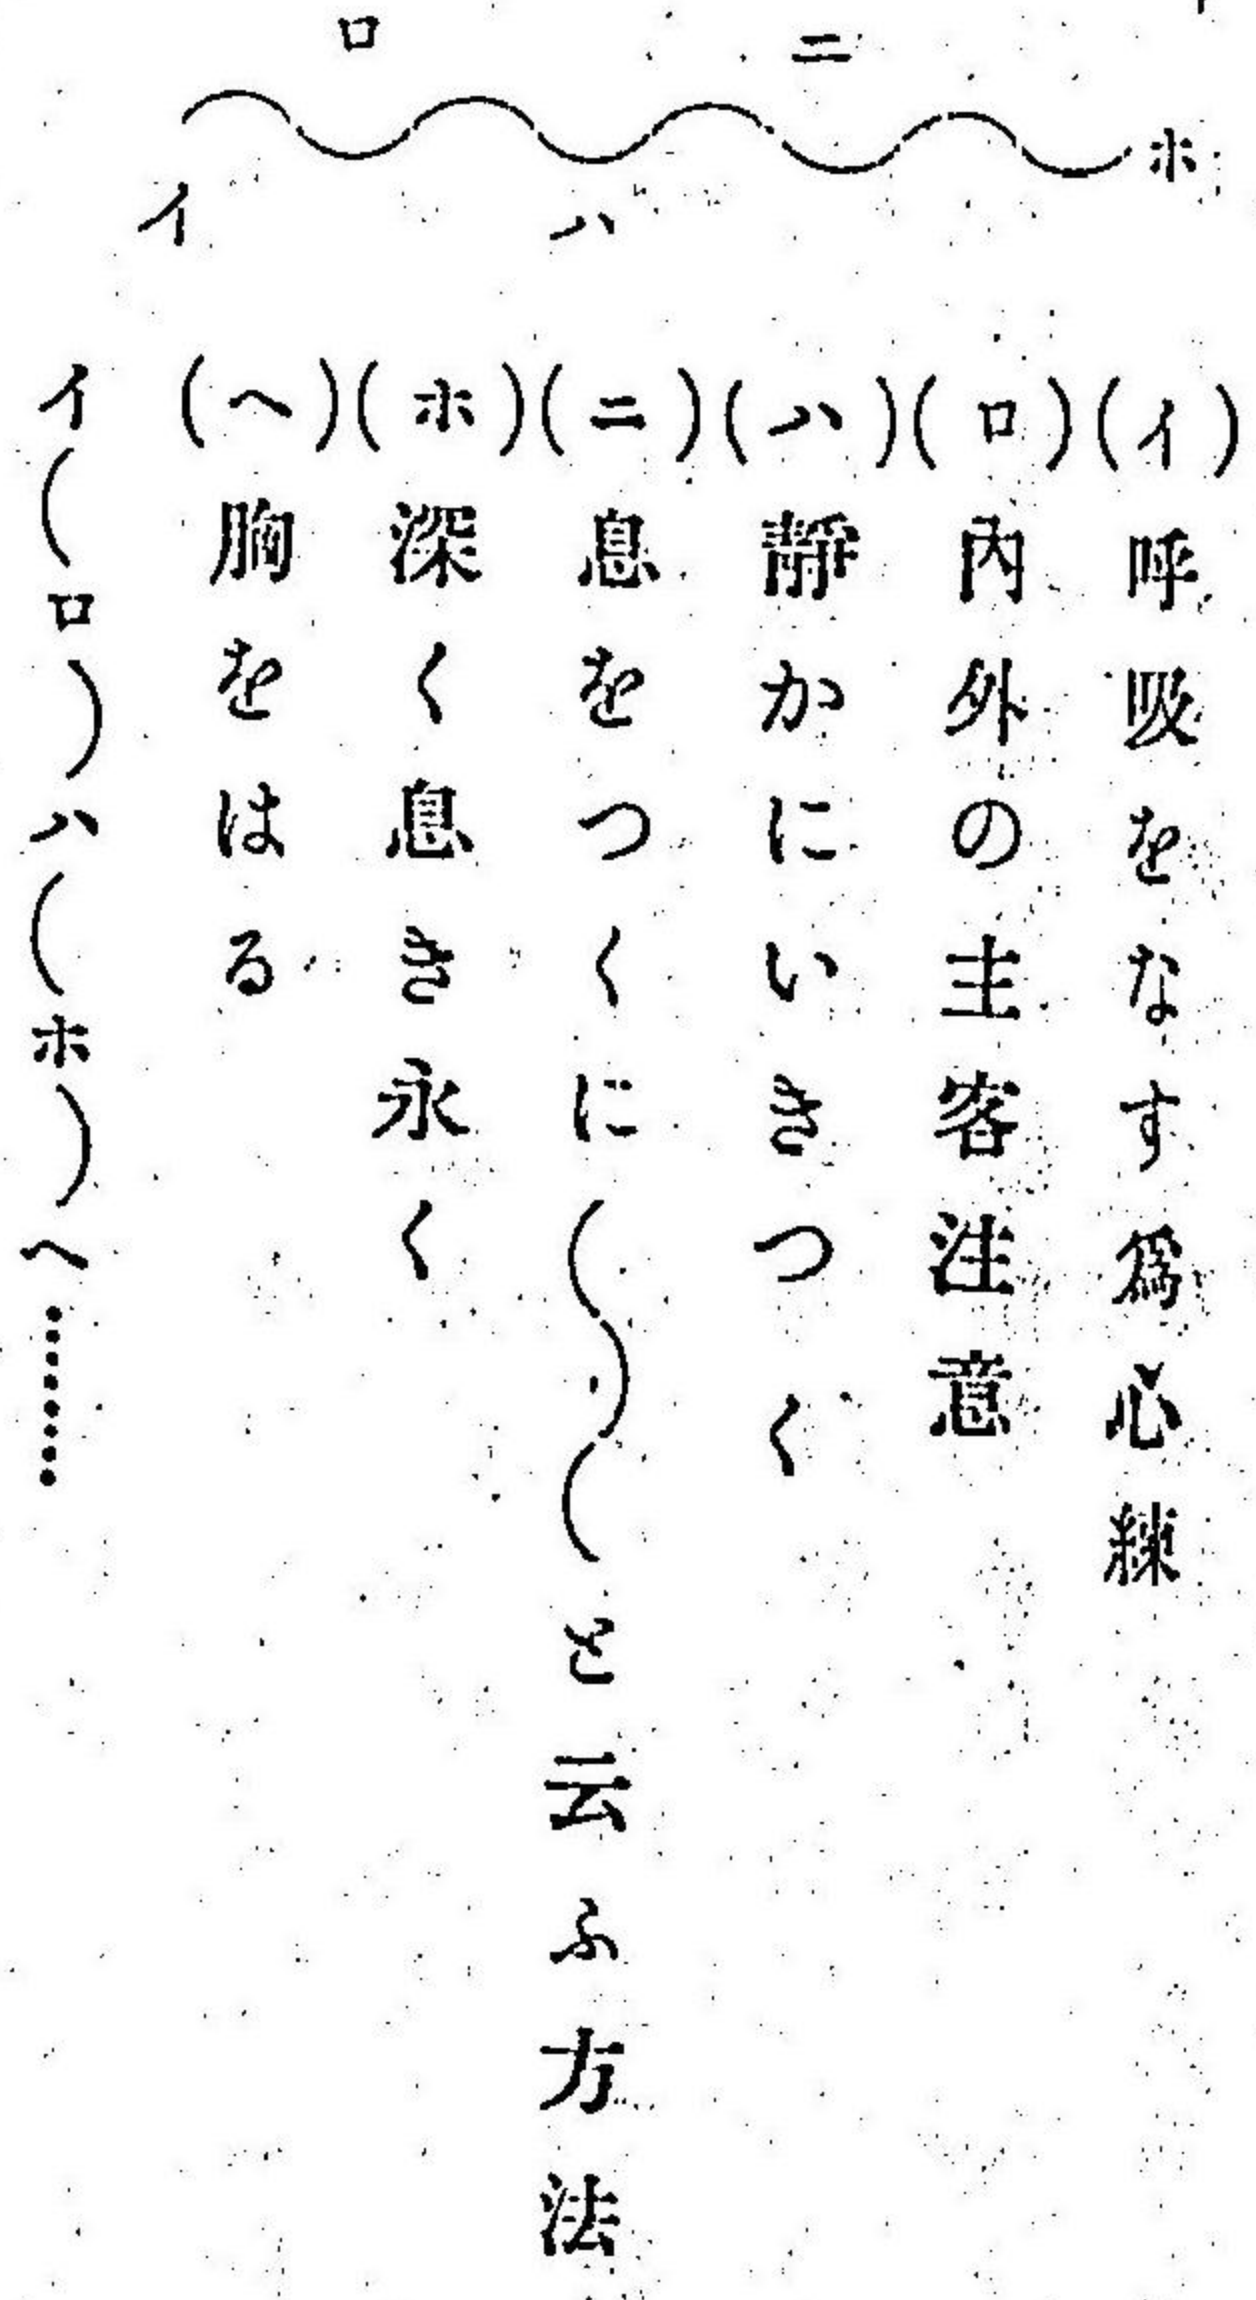 ロ ニ
ホ
イ ハ
(イ)呼吸をなす爲心練
(ロ)內外の主客注意
(ハ)靜かにいきつく
(ニ)息をつくに と云ふ方法
(ホ)深く息き永く
(ヘ)胸をはる
イ(ロ)ハ(ホ)ヘ………